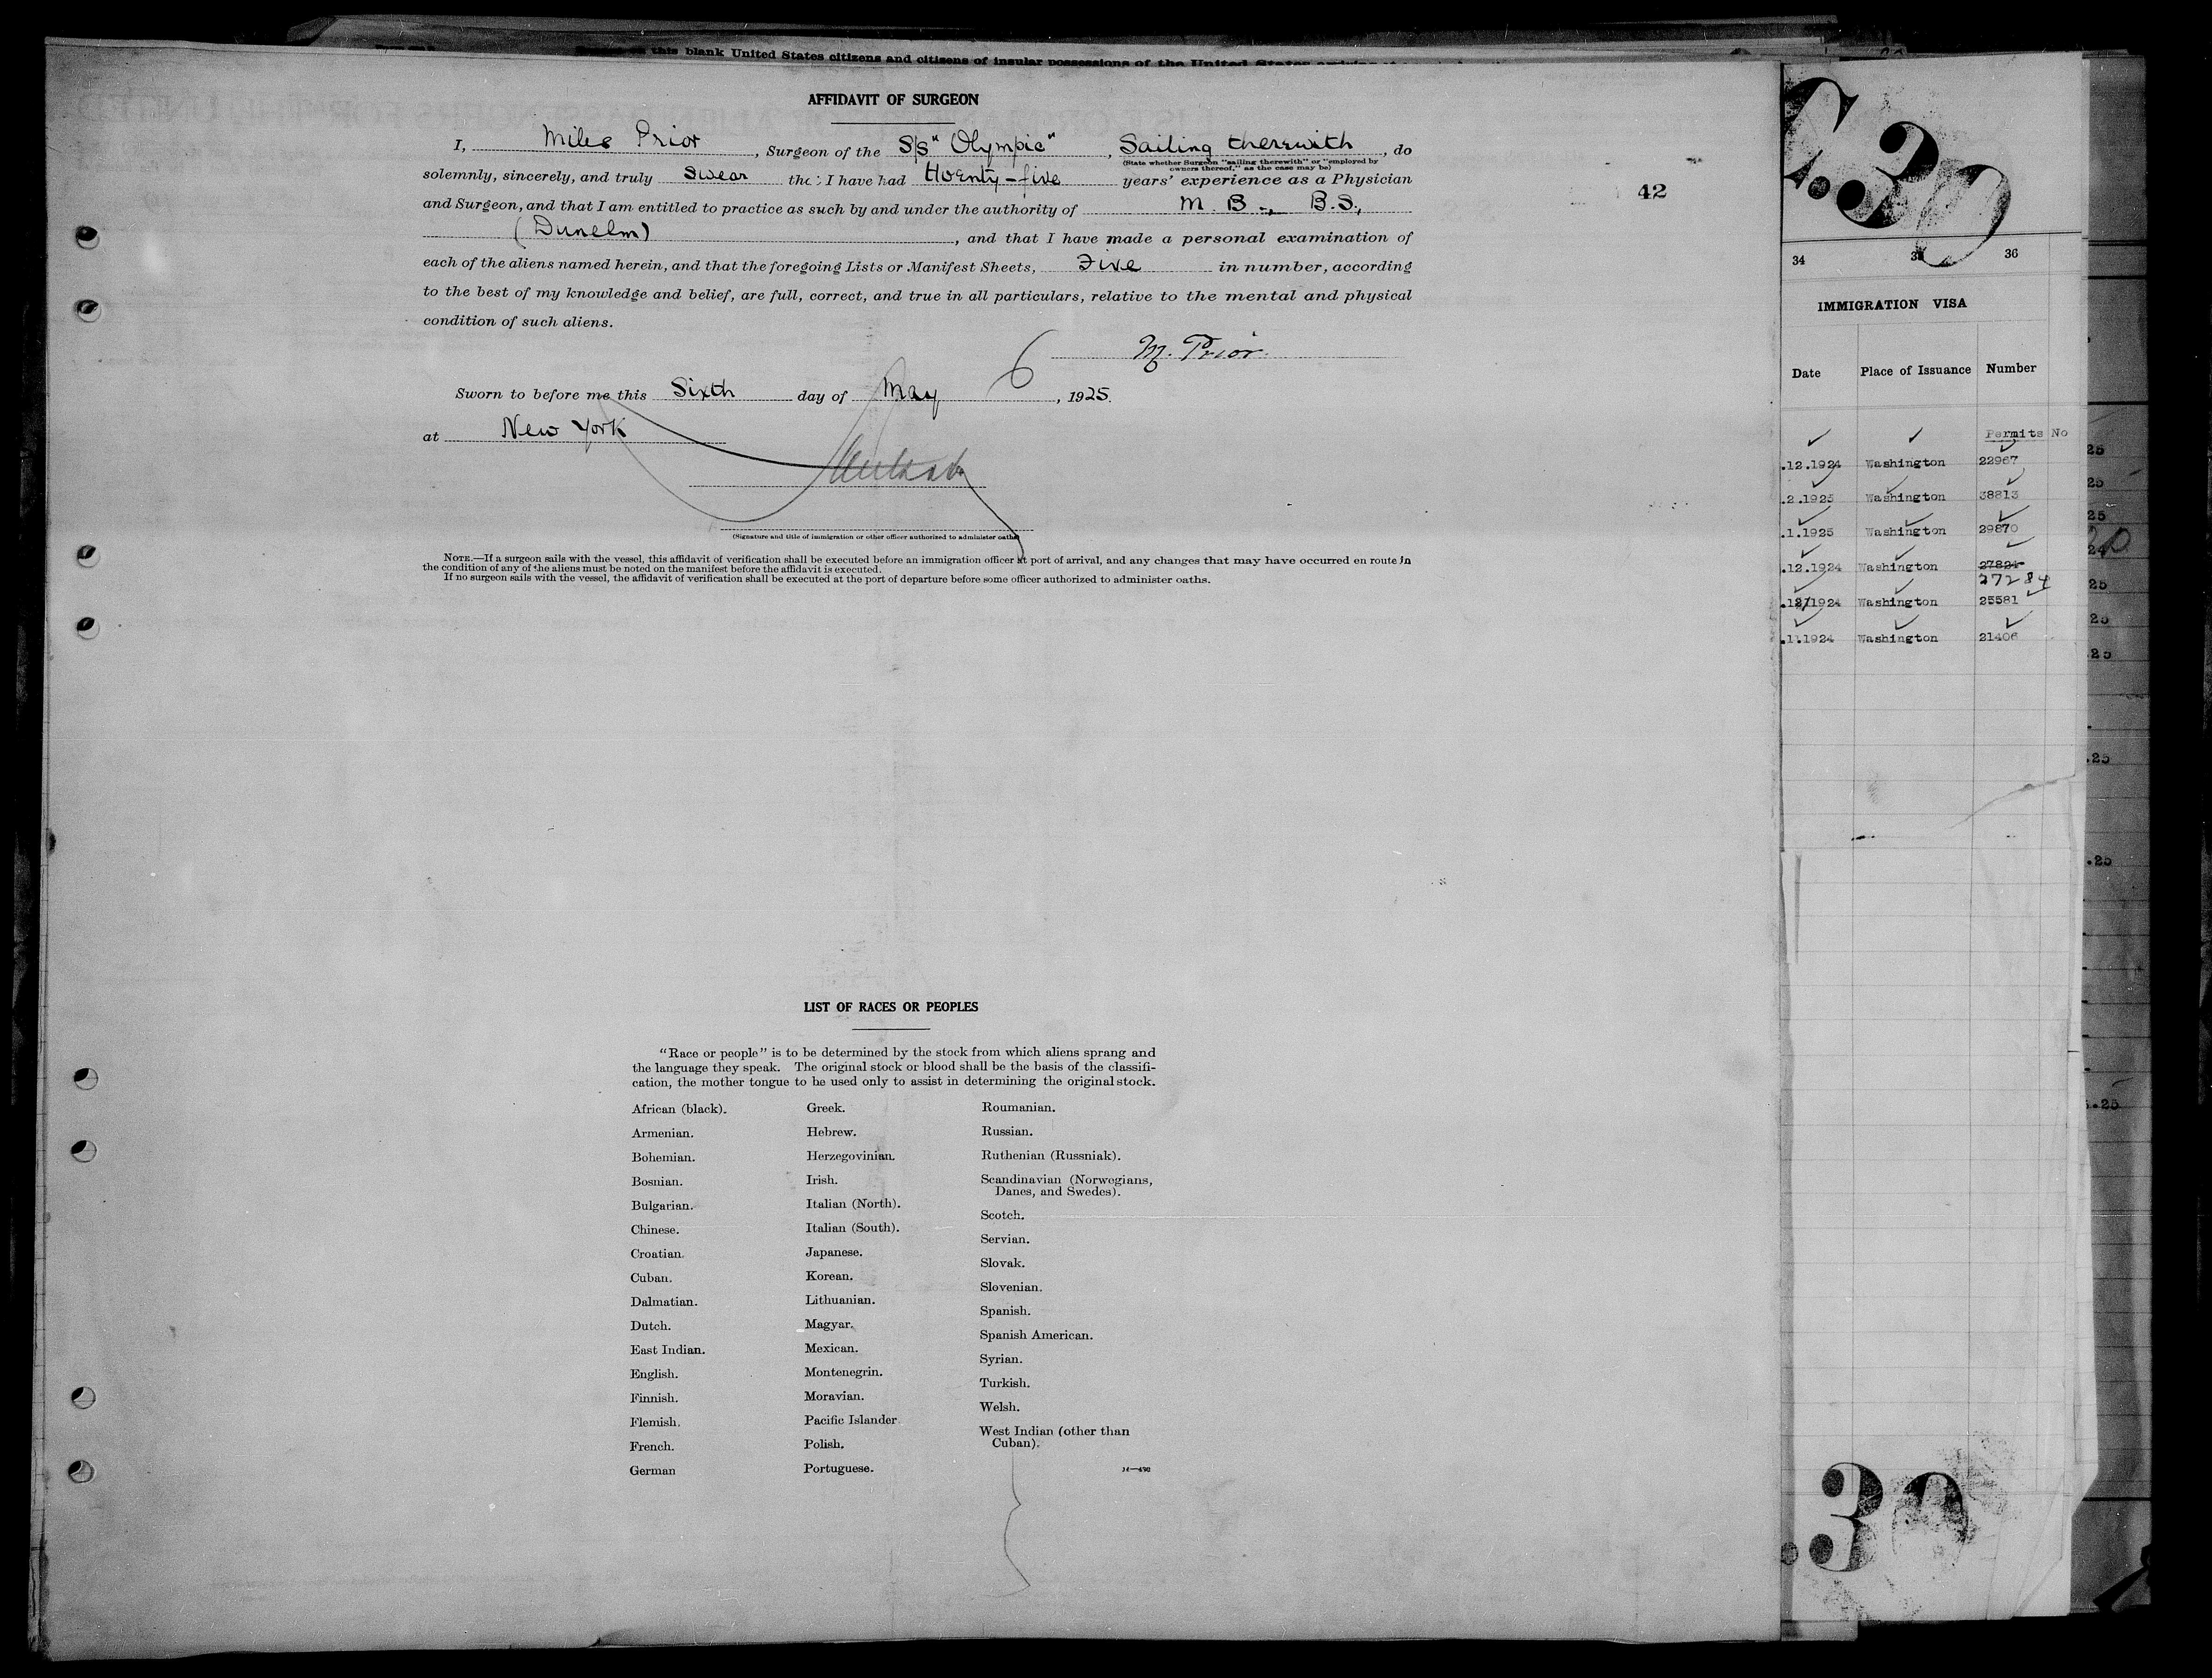 this blank United States citizens and citizens of insular possessions of the United States
AFFIDAVIT OF SURGEON
I, Miles Prior, Surgeon of the S/S "Olympic", Sailing therewith, do
(State whether Surgeon "sailing therewith" or "employed by
owners thereof," as the case may be)
solemnly, sincerely, and truly swear tha: I have had twenty-five years' experience as a Physician
and Surgeon, and that I am entitled to practice as such by and under the authority of M. B., B.S.,
(Dunelm), and that I have made a personal examination of
each of the aliens named herein, and that the foregoing Lists or Manifest Sheets, Five in number, according
to the best of my knowledge and belief, are full, correct, and true in all particulars, relative to the mental and physical
condition of such aliens.
M. Prior.
Sworn to before me this Sixth day of May 6, 1925.
at New York
(Signature and title of immigration or other officer authorized to administer oaths)
NOTE.—If a surgeon sails with the vessel, this affidavit of verification shall be executed before an immigration officer at port of arrival, and any changes that may have occurred en route in
the condition of any of the aliens must be noted on the manifest before the affidavit is executed.
If no surgeon sails with the vessel, the affidavit of verification shall be executed at the port of departure before some officer authorized to administer oaths.
42
LIST OF RACES OR PEOPLES
"Race or people" is to be determined by the stock from which aliens sprang and
the language they speak. The original stock or blood shall be the basis of the classifi-
cation, the mother tongue to be used only to assist in determining the original stock.
African (black).
Armenian.
Bohemian.
Bosnian.
Bulgarian.
Chinese.
Croatian.
Cuban.
Dalmatian.
Dutch.
East Indian.
English.
Finnish.
Flemish.
French.
German
Greek.
Hebrew.
Herzegovinian.
Irish.
Italian (North).
Italian (South).
Japanese.
Korean.
Lithuanian.
Magyar.
Mexican.
Montenegrin.
Moravian.
Pacific Islander
Polish.
Portuguese.
Roumanian.
Russian.
Ruthenian (Russniak).
Scandinavian (Norwegians,
Danes, and Swedes).
Scotch.
Servian.
Slovak.
Slovenian.
Spanish.
Spanish American.
Syrian.
Turkish.
Welsh.
West Indian (other than
Cuban).
34 35 36
IMMIGRATION VISA
Date Place of Issuance Number
Permits No
.12.1924 Washington 22967
.2.1925 Washington 38813
.1.1925 Washington 29870
.12.1924 Washington 27824
27284
.12.1924 Washington 25581
.11.1924 Washington 21406
30